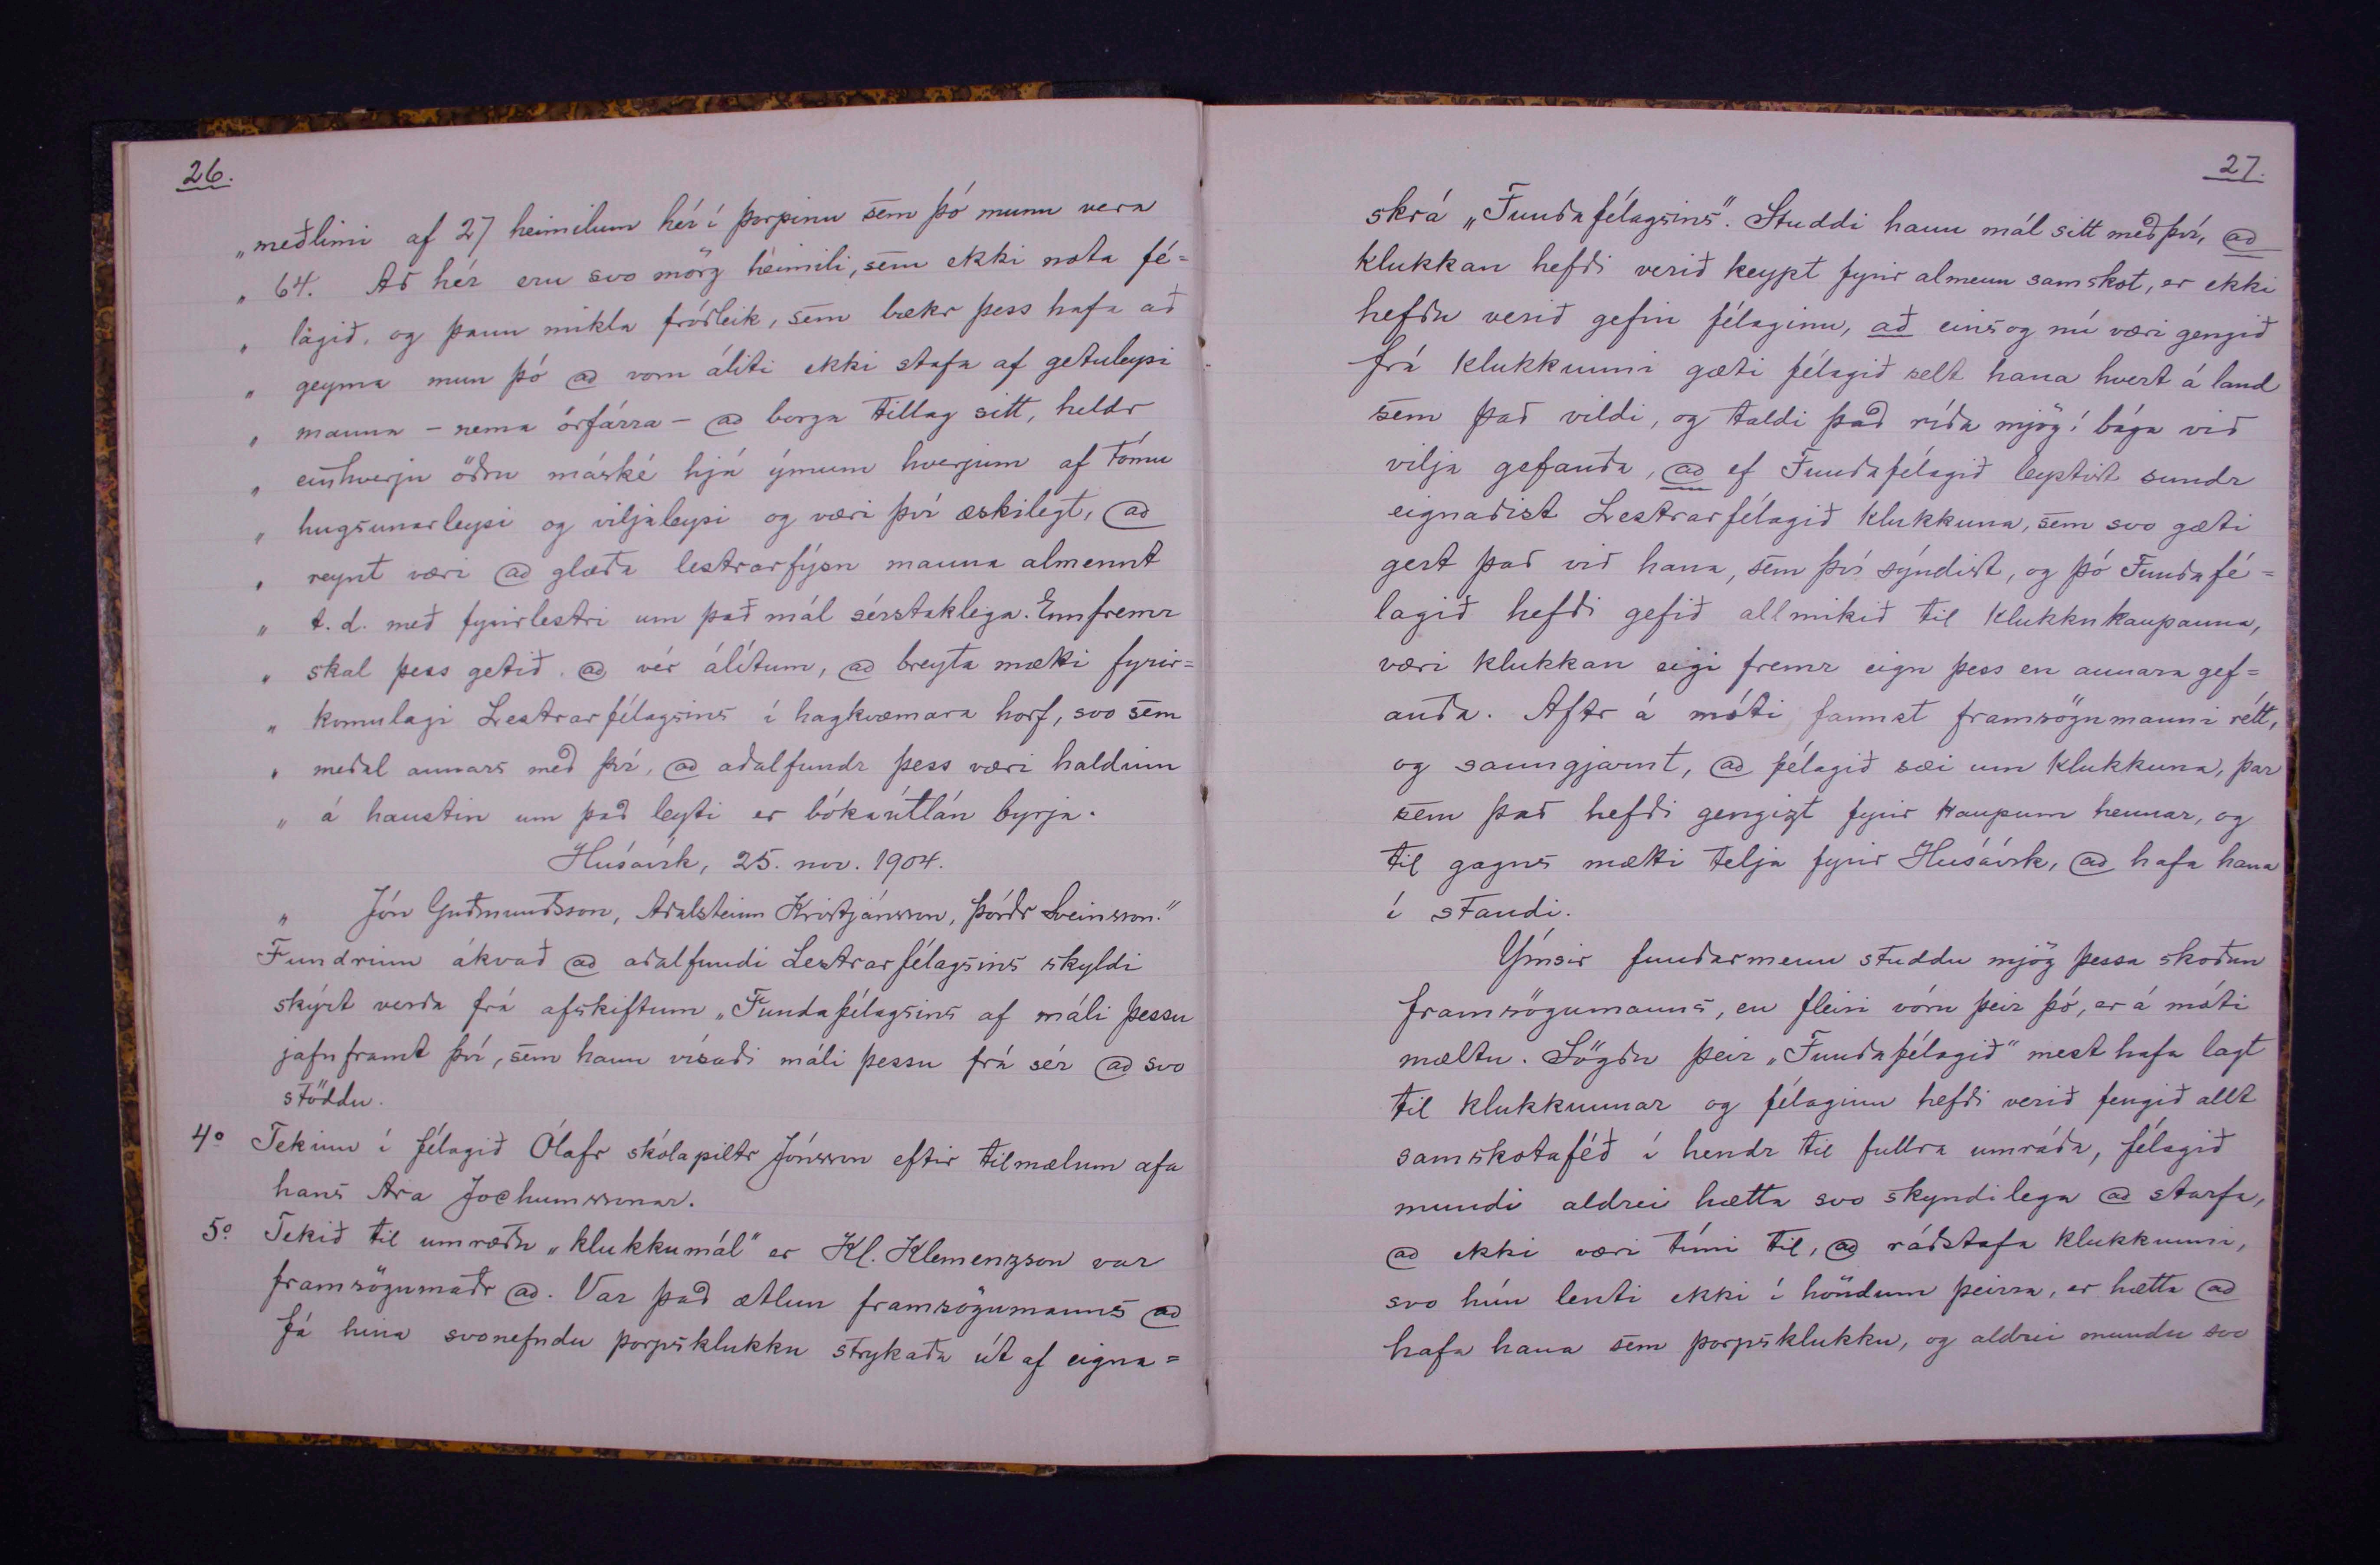 26.
„meðlimi af 27 heimilum hér í þorpinu sem þó munu vera
„ 64. Að hér eru svo mörg heimili, sem ekki nota fé=
„ lagið, og þann mikla fróðleik, sem bækr þess hafa að
„ geyma mun þó að vom áliti ekki stafa af getuleysi
„ manna – nema örfárra – að borga tillag sitt, heldr
„ einhverju öðru máské hjá ýmum hverjum af tómu
„ hugsunarleysi og viljaleysi og væri því æskilegt, að
„ reynt væri að glæða lestrarfýsn manna almennt
„ t.d. með fyrirlestri um það mál sérstaklega. Ennfremr
„ skal þess getið, að vér álítum, að breyta mætti fyrir=
„ komulagi Lestrarfélagsins í hagkvæmara horf, svo sem
„ meðal annars með því, að aðalfundr þess væri haldinn
„ á haustin um það leyti er bókaútlán byrja.
Húsávík, 25. nov. 1904.
„ Jón Guðmundsson, Aðalsteinn Kristjánsson, Þórðr Sveinsson."
Fundrinn ákvað að aðalfundi Lestrarfélagsins skyldi
skýrt verða frá afskiftum „Fundafélagsins af máli þessu
jafnframt því, sem hann vísaði máli þessu frá sér að svo
stöddu.
4º Tekinn í félagið Ólafr skólapiltr Jónsson eftir tilmælum afa
hans Ara Jochumssonar.
5º Tekið til umræðu „klukkumál" er Kl. Klemenzson var
framsögumaðr að. Var það ætlun framsögumanns að
fá hina svonefndu þorpsklukku strykaða út af eigna=
27.
skrá „Fundafélagsins". Studdi hann mál sitt með því, að
klukkan hefði verið keypt fyrir almenn samskot, er ekki
hefðu verið gefin félaginu, að eins og nú væri gengið
frá klukkunni gæti félagið selt hana hvert á land
sem það vildi, og taldi það ríða mjög í bága við
vilja gefanda, að ef Fundafélagið leystist sundr
eignaðist Lestrarfélagið klukkuna, sem svo gæti
gert það við hana, sem því sýndist, og þó Fundafé=
lagið hefði gefið allmikið til klukkukaupanna,
væri klukkan eigi fremr eign þess en annara gef=
anda. Aftr á móti fannst framsögumanni rétt,
og sanngjarnt, að félagið sæi um klukkuna, þar
sem það hefði gengizt fyrir kaupum hennar, og
til gagns mætti telja fyrir Húsávík, að hafa hana
í standi.
Ýmsir fundarmenn studdu mjög þessa skoðun
framsögumanns, en fleiri vóru þeir þó, er á móti
mæltu. Sögðu þeir „Fundafélagið" mest hafa lagt
til klukkunnar og félaginu hefði verið fengið allt
samskotaféð í hendr til fullra umráða, félagið
mundi aldrei hætta svo skyndilega að starfa,
að ekki væri tími til, að ráðstafa klukkunni,
svo hún lenti ekki í höndum þeirra, er hætta að
hafa hana sem þorpsklukku, og aldrei mundu svo